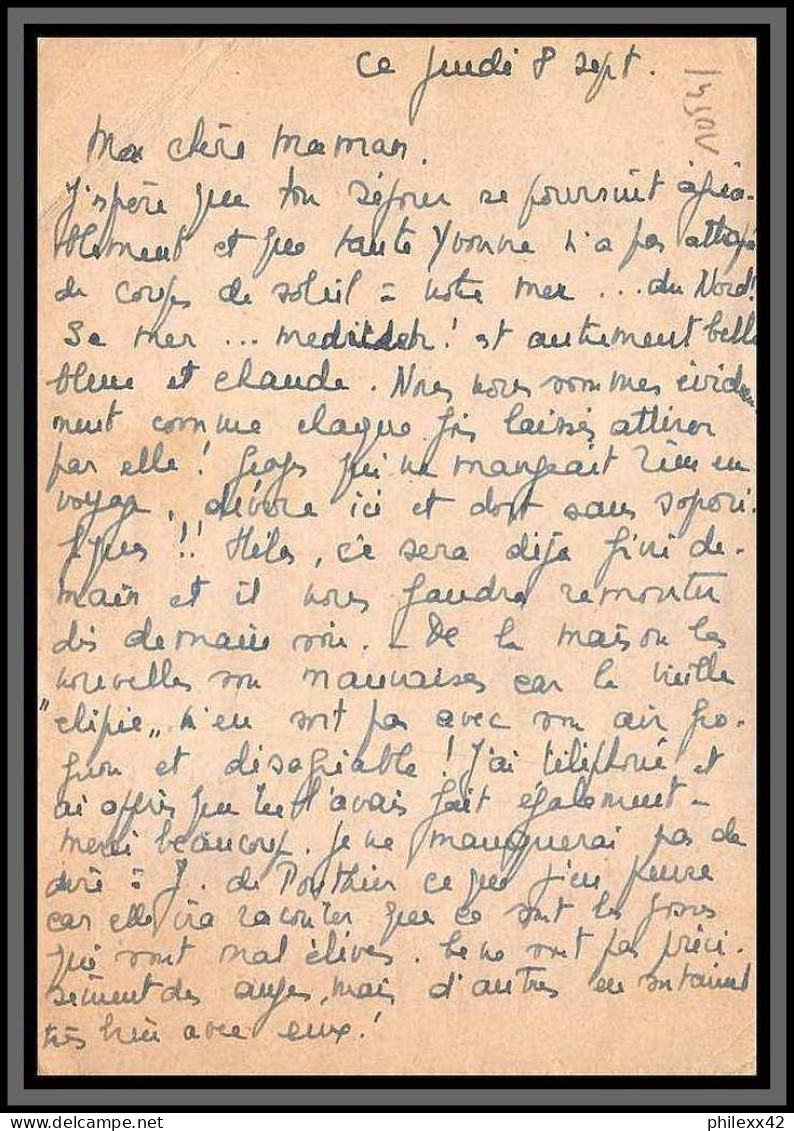 ce Jeudi 8 sept.
Ma chère maman.
J'espère que ton séjour se poursuit agréa-
blement et que tante Yvonne n'a pas attrapé
de coups de soleil = notre mer ... du Nord!
Se mer ... ! est autrement belle
bleue et chaude. Nous nous sommes évidem
ment comme chaque fois laissés attirer
par elle! qui ne mangeait rien en
voyage, dévore ici et dort sans sopori-
fiques!! Hélas, ce sera déjà fini de-
main et il nous faudra remonter
dès demain soir. - De la maison les
nouvelles son mauvaises car la vieille
" " n'en sort pas avec son air gro-
gnon et désagréable! J'ai téléphoné et
ai appris que tu l'avais fait également -
merci beaucoup. Je ne manquerai pas de
dire = J. de Ponthier ce que j'en pense
car elle ira raconter que ce sont les gosses
qui sont mal élevés. Ce ne sont pas préci-
sément des anges, mais d'autres en sortaient
très bien avec eux!
philexx42